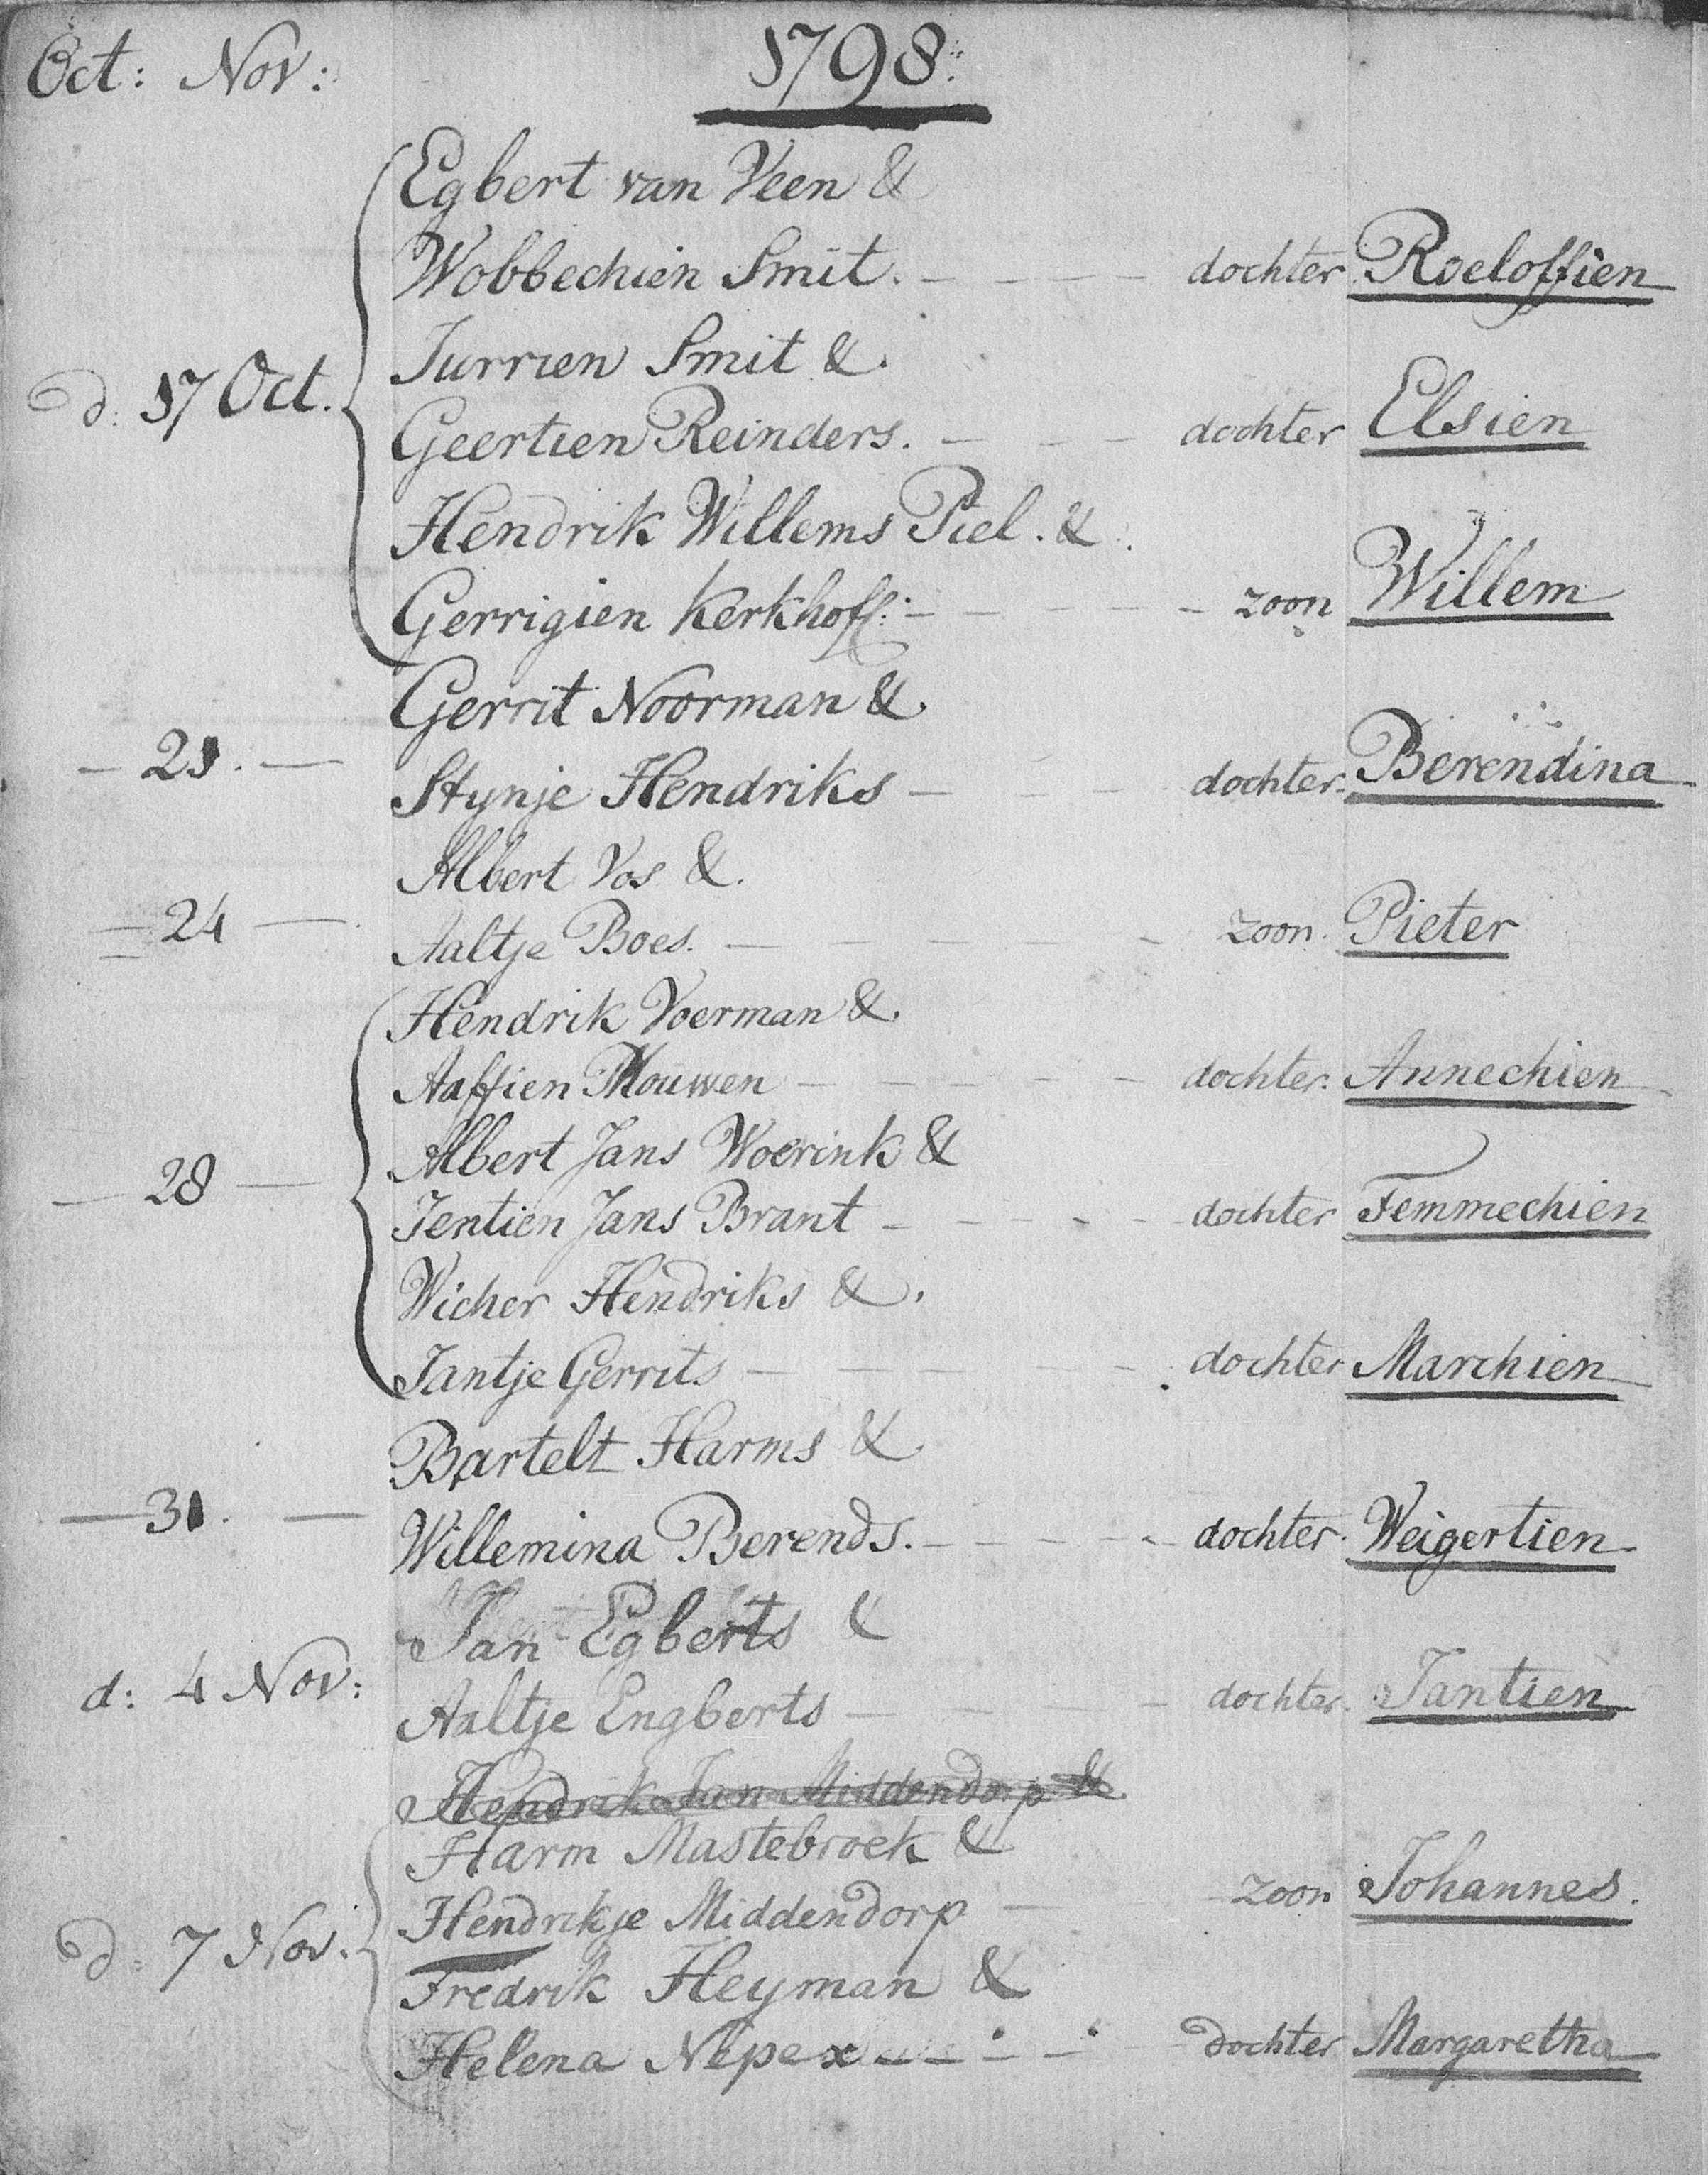 Oct: Nov: 1798:
Egbert van Veen &
Wobbechien Smit. dochter Roeloffien
d: 17 Oct. Jurrien Smit &.
Geertien Reinders. dochter Elsien
Hendrik Willems Piel. &.
Gerrigien Kerkhoff: zoon Willem
Gerrit Noorman &.
- 21. - Stynje Hendriks dochter. Berendina
Albert Vos &.
- 24 - Aaltje Boes. zoon. Pieter
Hendrik Voerman &.
Aaffien Mouwen dochter. Annechien
Albert Jans Woerink &
- 28 - Jentien Jans Brant dochter Femmechien
Wicher Hendriks &.
Jantje Gerrits dochter Marchien
Bartelt Harms &
- 31. - Willemina Berends. dochter. Weigertien
Jan Egberts &
d: 4 Nov: Aaltje Engberts dochter. Jantien
Hendrik Jan Middendorp &.
Harm Mastebroek &
Hendrikje Middendorp zoon Johannes.
d: 7 Nov. Fredrik Heyman &
Helena Nepex dochter Margaretha